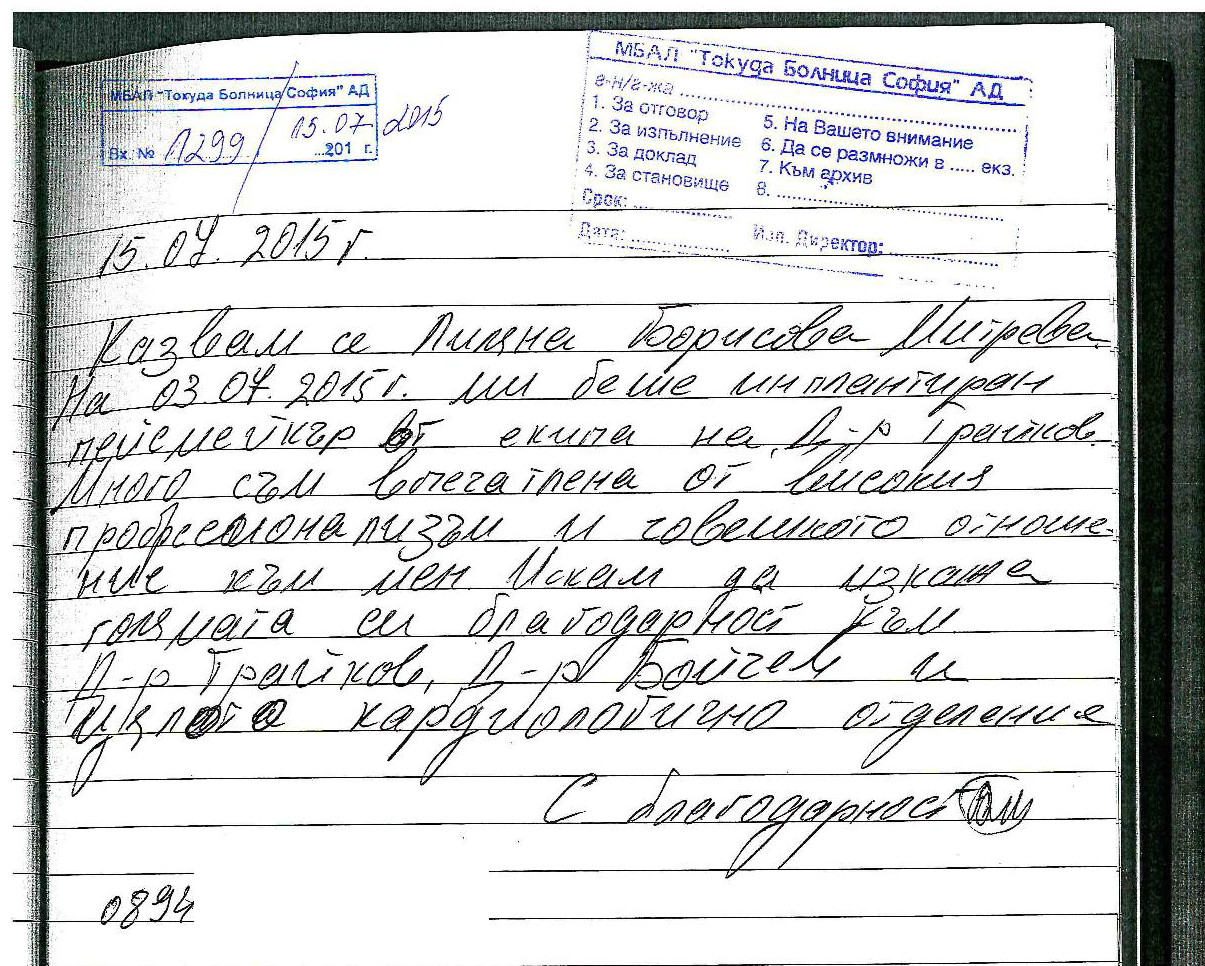 МБАЛ "Токуда Болница София" АД
Вх. № 1299 / 15.07 2015
...201 г.
МБАЛ "Токуда Болница София" АД
г-н/г-жа ..........
1. За отговор
2. За изпълнение
3. За доклад
4. За становище
Срок: ..........
Дата: ..........
5. На Вашето внимание
6. Да се размножи в ..... екз.
7. Към архив
8. ..........
Изп. Директор: ..........
15.07. 2015г.
Казвам се Лиляна Борисова Митрева.
На 03 07. 2015г. ми беше имплантиран
пейсмейкър от екипа на Д-р Трайков.
Много съм впечатлена от високия
професионализъм и човешкото отноше-
ние към мен. Искам да изкажа
голямата си благодарност към
Д-р Трайков, Д-р Бойчев и
цялото кардиологично отделение
С благодарност
0894